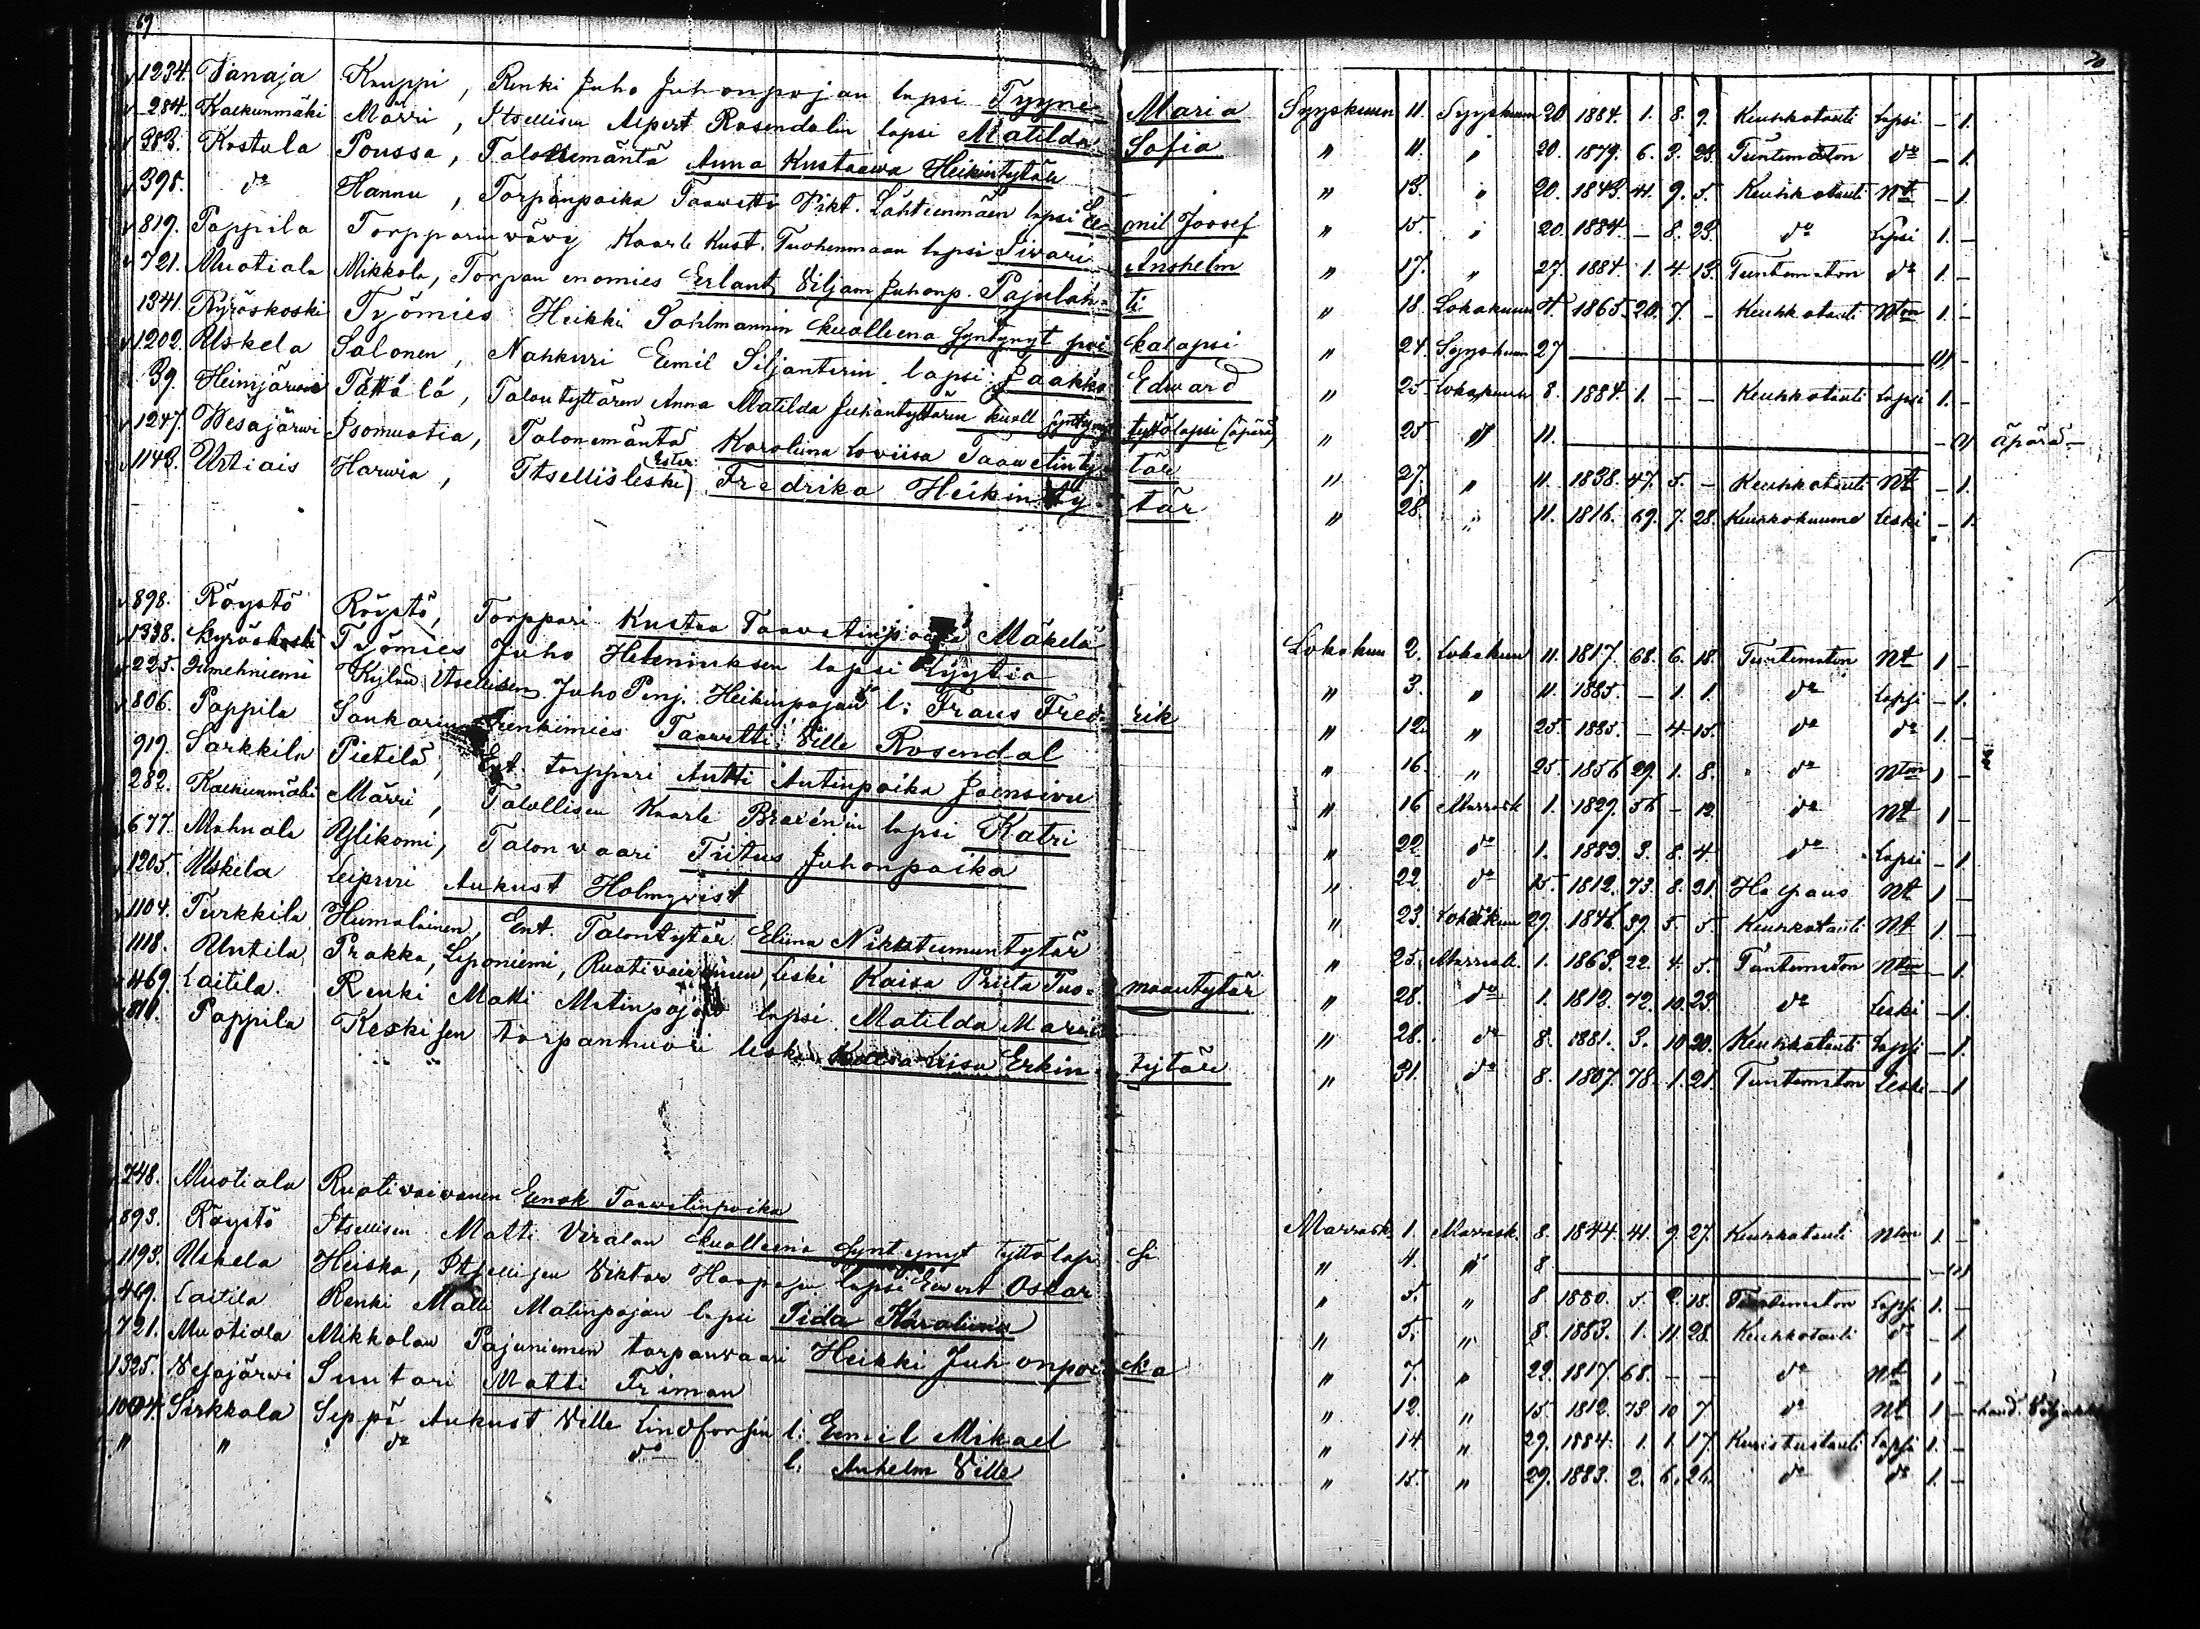 69
70
1234. Vanaja Kruppi, Renki Juho Juhonpojan lapsi Tyyne Maria Syyskuun 11. Syyskuun 20 1884. 1. 8. 9. Keuhkotauti Lapsi – 1.
284. Kalkunmäki Märri, Itsellisen Alpert Rosendalin lapsi Matilda Sofia " 11. " 20. 1879. 6. 3. 23. Tuntematon do – 1.
383. Kostula Poussa, Talon emäntä Anna Kustaawa Heikintytär " 13. " 20. 1843. 41. 9. 5. Keuhkotauti Nt – 1.
398. do Hannu, Torpanpoika Taawetti Vikt. Lähteenmäen lapsi Eemil Joosef " 15. " 20. 1884. – 8. 23. do Lapsi 1. –
819. Pappila Torpparin vävy Kaarle Kust. Tuohenmaan lapsi Iivari Anshelm " 17. " 27. 1884. 1. 4. 13. Tuntematon do 1. –
721. Muotiala Mikkola, Torpan enomies Erlant Viljam Juhonp. Pajulahti " 18. Lokakuun 4. 1865. 20. 7. – Keuhkotauti Ntm 1. –
1341. Kyröskoski Työmies Heikki Pohlmannin kuolleena syntynyt poikalapsi " 24. Syyskuun 27
1202. Uskela Salonen, Nahkuri Eemil Siljanterin lapsi Jaakko Edward " 25. Lokakuun 8. 1884. 1. – – Keuhkotauti Lapsi 1. –
39. Heinijärwi Tättälä, Talontyttären Anna Matilda Juhontyttären kuoll. syntynyt tyttölapsi (äpärä) " 25 " 11. äpärä –
1247. Wesajärwi Isomuotia, Talonemäntä Karoliina Loviisa Taawetintytär " 27. " 11. 1838. 47. 5. – Keuhkotauti Nt – 1.
1143. Urtiais Harwia, Itsellisleski (Ester) Fredrika Heikintytär " 28. " 11. 1816. 69. 7. 28. Keuhkokuume Leski – 1.
898. Röystö Röystö, Torppari Kustaa Taavetinpoika Mäkelä Lokakuun 2. Lokakuun 11. 1817. 68. 6. 18. Tuntematon Nt 1 –
1338. Kyröskoski Työmies Juho Heleniuksen lapsi Lyytia " 3. " 11. 1885. – 1. 1. do Lapsi – 1.
225. Jumehniemi Kylän Itsellisen Juho Penj. Heikinpojan l: Frans Fredrik " 12. " 25. 1885. – 4. 15. do do 1. –
806. Pappila Sankarin Renkimies Taavetti Ville Rosendal " 16. " 25. 1856. 29. 1. 8. do Ntm 1 –
919. Sarkkila Pietilä, Ent. torppari Antti Antinpoika Joensivu " 16 Marrask. 1. 1829. 56 – 12 do Nt 1 –
282. Kalkunmäki Märri, Talollisen Kaarle Braxénin lapsi Katri " 22. do 1. 1883. 3. 8. 4 do Lapsi – 1
677. Mahnala Ylikomi, Talon vaari Tiitus Juhonpoika " 22 do 15. 1812. 73. 8. 31. Halpaus Nt 1 –
1205. Uskela Leipuri Aukust Holmqvist " 23. Lokakuun 29. 1846. 39. 5. 5. Keuhkotauti Nt 1. –
1104. Turkkila Humalainen, Ent. Talontytär Eliina Nikkteemuntytär " 25. Marrask. 1. 1863. 22. 4. 5. Tuntematon Ntm – 1.
1118. Untila Prakka, Leponiemi, Ruotivaivainen, leski Kaisa Priita Tuomaantytär " 28. do 1. 1812. 72. 10. 23. do Leski – 1.
469. Laitila. Renki Matti Matinpojan lapsi Matilda Maria " 28. do 8. 1881. 3. 10 20. Keuhkotauti Lapsi – 1.
816. Pappila Keskisen torpanmuori leski Kaisa Liisa Erkintytär " 31. do 8. 1807. 78. 1. 21. Tuntematon Leski – 1
748. Muotiala Ruotivaivanen Eenok Taavetinpoika Marrask. 1. Marrask. 8. 1844. 41. 9. 27. Keuhkotauti Ntm 1 –
893. Röystö Itsellisen Matti Viralan kuolleena syntynyt tyttölapsi " 4. " 8.
1193. Uskela Heiska, Itsellisen Viktor Haapasen lapsi Ewert Oskar " 5. " 8 1880. 5. 18. Tuntematon Lapsi 1. –
469. Laitila Renki Matti Matinpojan lapsi Iida Karoliina " 5. " 8. 1883. 1. 11. 28. Keuhkotauti do – 1
721. Muotiala Mikkolan Pajuniemen torpanvaari Heikki Juhonpoika " 7. " 22. 1817. 68. – – do Nt 1 –
1325. Vesajärwi Suutari Matti Friman " 12. " 15. 1812. 73 10 7 do Nt 1 –
1004. Sirkkala Seppä Aukust Ville Lindforsin l: Eemil Mikael " 14 " 29. 1884. 1. 1. 17. Kuristustauti Lapsi 1. –
" " do do l: Anhelm Ville " 15. " 29. 1883. 2. 6. 26. do do 1. –